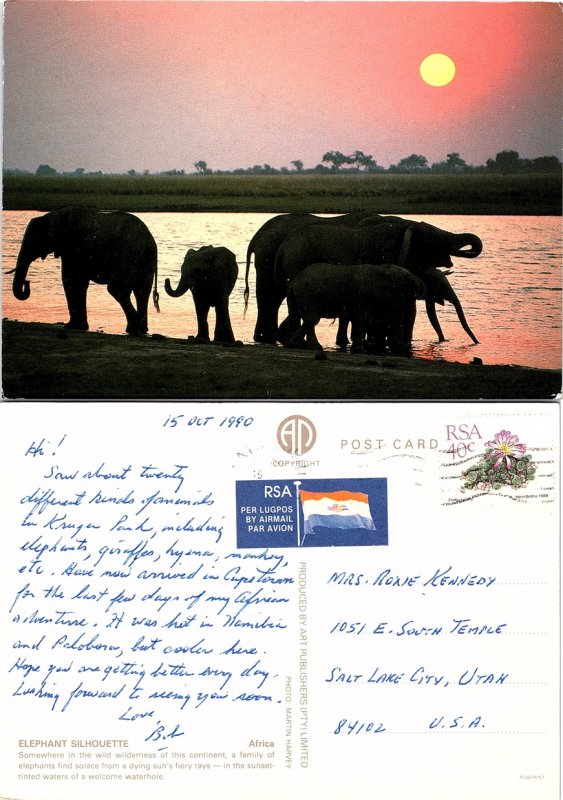 15 OCT 1990
Hi!
Saw about twenty
different kinds of animals
in Kruger Park, including
elephants, giraffes, hyena, monkey,
etc. Have now arrived in Capetown
for the last few days of my African
adventure. It was hot in Namibia
and Palobora, but cooler here.
Hope you are getting better every day.
Looking forward to seeing you soon.
Love,
Bob
ELEPHANT SILHOUETTE Africa
Somewhere in the wild wilderness of this continent, a family of
elephants find solace from a dying sun's fiery rays — in the sunset-
tinted waters of a welcome waterhole.
COPYRIGHT
POST CARD
RSA
40c
1988
RSA
PER LUGPOS
BY AIRMAIL
PAR AVION
PRODUCED BY ART PUBLISHERS (PTY) LIMITED
PHOTO: MARTIN HARVEY
MRS. ROXIE KENNEDY
1051 E. SOUTH TEMPLE
SALT LAKE CITY, UTAH
84102 U.S.A.